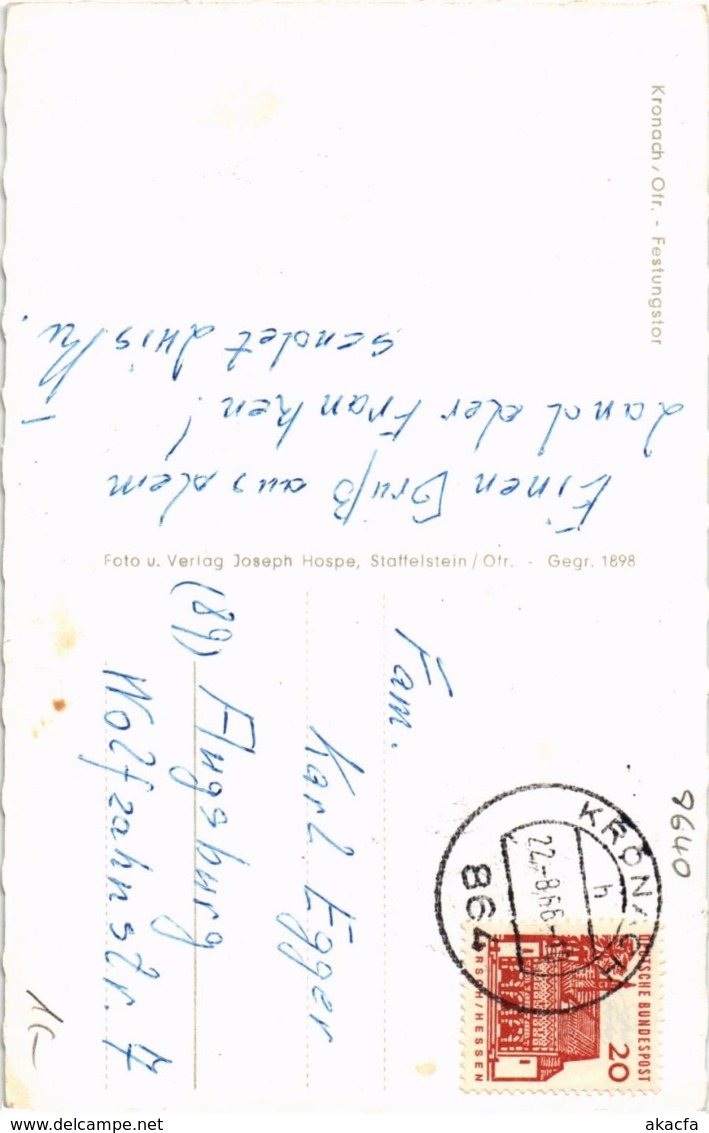 Kronach/Ofr. - Festungstor
Einen Gruß aus dem
Land der Franken!
sendet
Foto u. Verlag Joseph Hospe, Staffelstein/Ofr. - Gegr. 1898
Fam.
Karl Egger
(89) Augsburg
Wolfzahnstr. 7
KRONACH
h
22.-8.66
864
DEUTSCHE BUNDESPOST
20
LORSCH/HESSEN
8640
www.delcampe.net
akacfa